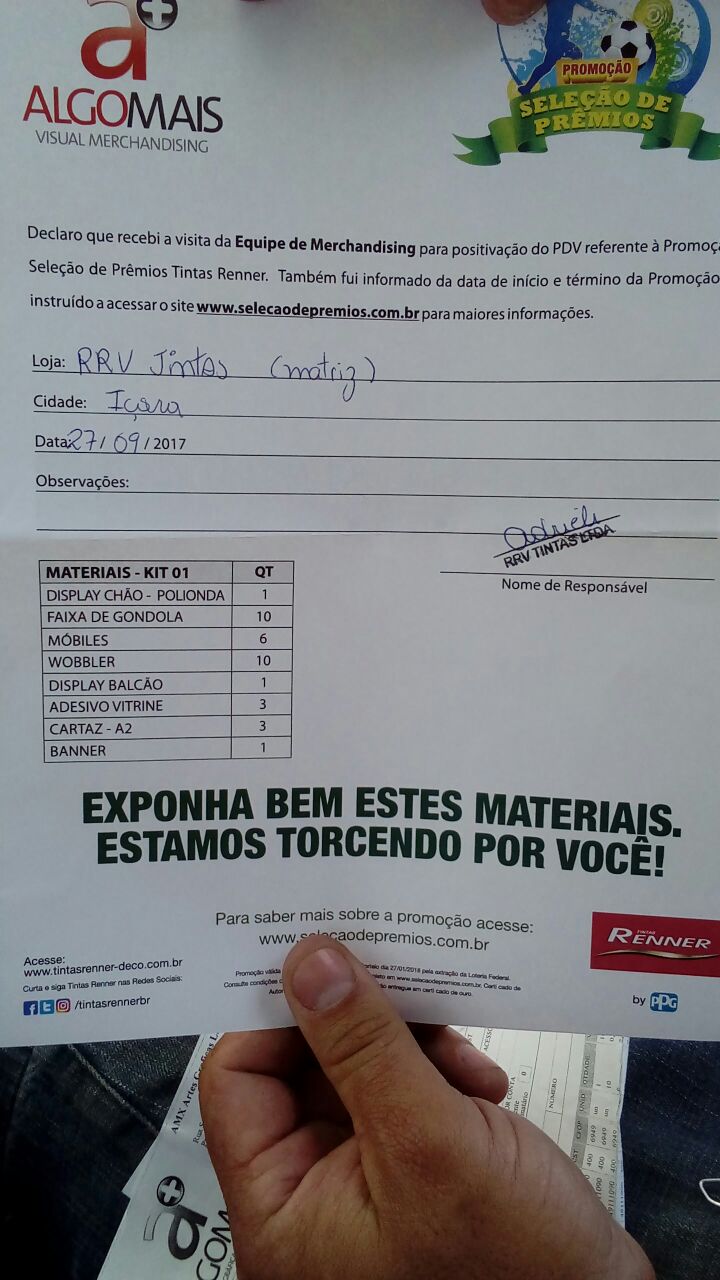 a+
ALGOMAIS
VISUAL MERCHANDISING
PROMOÇÃO
SELEÇÃO DE
PRÊMIOS
Declaro que recebi a visita da Equipe de Merchandising para positivação do PDV referente à Promoç
Seleção de Prêmios Tintas Renner. Também fui informado da data de início e término da Promoção
instruído a acessar o site www.selecaodepremios.com.br para maiores informações.
Loja: RRV Tintas (matriz)
Cidade: Içara
Data: 27/09/2017
Observações:
Adrieli
RRV TINTAS LTDA
Nome de Responsável
MATERIAIS - KIT 01 QT
DISPLAY CHÃO - POLIONDA 1
FAIXA DE GONDOLA 10
MÓBILES 6
WOBBLER 10
DISPLAY BALCÃO 1
ADESIVO VITRINE 3
CARTAZ - A2 3
BANNER 1
EXPONHA BEM ESTES MATERIAIS.
ESTAMOS TORCENDO POR VOCÊ!
Para saber mais sobre a promoção acesse:
www.selecaodepremios.com.br
Acesse:
www.tintasrenner-deco.com.br
Curta e siga Tintas Renner nas Redes Sociais:
/tintasrennerbr
Promoção válida
sorteio dia 27/01/2018 pela extração da Loteria Federal.
Consulte condições
www.selecaodepremios.com.br. Certi cado de
entregue em certi cado de ouro.
TINTAS
RENNER
by PPG
AMX Artes
a+
ALGOM
NÚMERO
CFOP UNID QTDADE
400 6949 un 1
400 6949 un 10